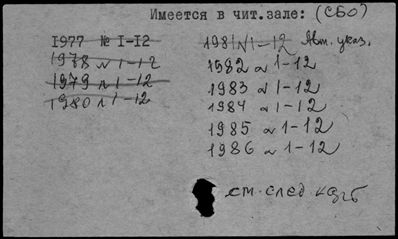 Имеется в чит.зале: (СБО)
1977 № I-I2
1978 № 1-12
1979 № 1-12
1980 № 1-12
1981 № 1-12 Авт. указ.
1982 № 1-12
1983 № 1-12
1984 № 1-12
1985 № 1-12
1986 № 1-12
см. след.